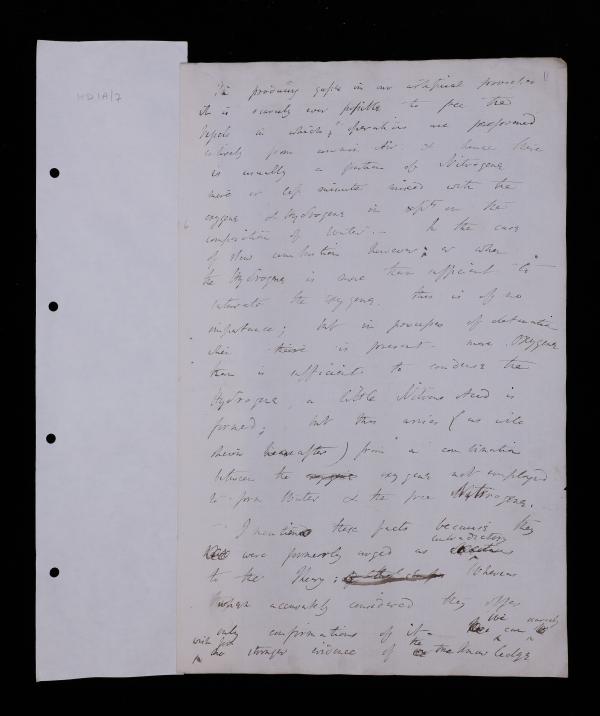 HD 1A/7
11
In producing gases in our artificial processes
it is scarcely ever possible to free the
vessels in which operations are performed
entirely from common Air & hence there
is usually a portion of Nitrogene
more or less minute mixed with the
oxygene & Hydrogene in expts on the
composition of Water. — In the case
of slow combustion however; or when
the Hydrogene is more than sufficient to
saturate the oxygene, this is of no
importance; but in processes of detonation
when there is present more oxygene
than is sufficient to condense the
Hydrogene, a little Nitrous Acid is
formed; but this arises (as will
shewn hereafter) from a combination
between the oxygene oxygene not employed
to form Water & the free Nitrogene.
I mention these facts because they
contradictory
were formerly urged as
to the Theory; Whereas
when accurately considered they offer
only confirmations of it — We scarcely can
with for
no stronger evidence of the knowledge